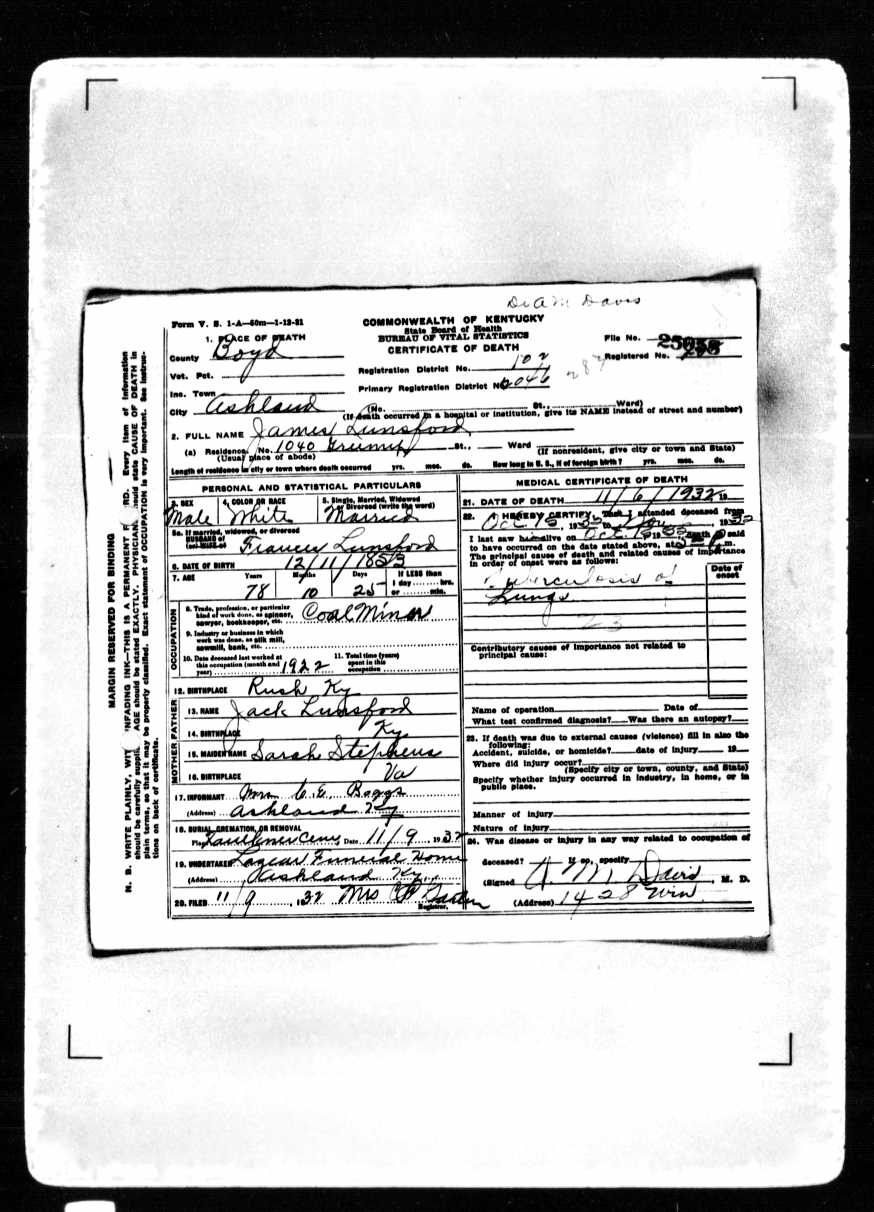 Dr A M Davis
Form V. S. 1-A—50m—1-12-31
COMMONWEALTH OF KENTUCKY
State Board of Health
BUREAU OF VITAL STATISTICS
CERTIFICATE OF DEATH
File No.
Registered No.
1. PLACE OF DEATH
County Boyd
Vot. Pct.
Inc. Town
City Ashland (No. St., Ward)
(If death occurred in a hospital or institution, give its NAME instead of street and number)
Registration District No. 102
Primary Registration District No. 2046
2. FULL NAME James Lunsford
(a) Residence, No. 1040 St., Ward (If nonresident, give city or town and State)
(Usual place of abode)
Length of residence in city or town where death occurred yrs. mos. ds. How long in U. S., if of foreign birth? yrs. mos. ds.
PERSONAL AND STATISTICAL PARTICULARS
3. SEX
Male
4. COLOR OR RACE
White
5. Single, Married, Widowed
or Divorced (write the word)
Married
5a. If married, widowed, or divorced
HUSBAND of
(or) WIFE of
Frances Lunsford
6. DATE OF BIRTH 12/11/1853
7. AGE Years Months Days If LESS than
1 day hrs.
or min.
78 10 25
OCCUPATION
8. Trade, profession, or particular
kind of work done, as spinner,
sawyer, bookkeeper, etc. Coal Miner
9. Industry or business in which
work was done, as silk mill,
sawmill, bank, etc.
10. Date deceased last worked at
this occupation (month and
year) 1922
11. Total time (years)
spent in this
occupation
12. BIRTHPLACE Rush Ky
FATHER
13. NAME Jack Lunsford
14. BIRTHPLACE Ky
MOTHER
15. MAIDEN NAME Sarah Stephens
16. BIRTHPLACE Va
17. INFORMANT Mrs C. E. Boggs
(Address) Ashland Ky
18. BURIAL, CREMATION, OR REMOVAL
Place Faulkner Cem Date 11/9, 1932
19. UNDERTAKER Lazear Funeral Home
(Address) Ashland Ky.
20. FILED 11/9, 1932 Mrs
Registrar.
MEDICAL CERTIFICATE OF DEATH
21. DATE OF DEATH 11/6/1932 19
22. I HEREBY CERTIFY, That I attended deceased from
Oct 15, 1932 to Nov, 1932
I last saw him alive on Oct. 1932, death is said
to have occurred on the date stated above, at m.
The principal cause of death and related causes of importance
in order of onset were as follows:
Date of
onset
Tuberculosis of
Lungs
23
Contributory causes of importance not related to
principal cause:
Name of operation Date of
What test confirmed diagnosis? Was there an autopsy?
23. If death was due to external causes (violence) fill in also the
following:
Accident, suicide, or homicide? date of injury 19
Where did injury occur?
(Specify city or town, county, and State)
Specify whether injury occurred in industry, in home, or in
public place.
Manner of injury
Nature of injury
24. Was disease or injury in any way related to occupation of
deceased? If so, specify
(Signed A. M. Davis, M. D.
(Address) 1428 Win
MARGIN RESERVED FOR BINDING
N. B. WRITE PLAINLY, UNFADING INK—THIS IS A PERMANENT Every item of information
should be carefully AGE should be stated EXACTLY. PHYSICIANS should state CAUSE OF DEATH in
plain terms, so that it may be properly classified. Exact statement of OCCUPATION is very important. See
tions on back of certificate.